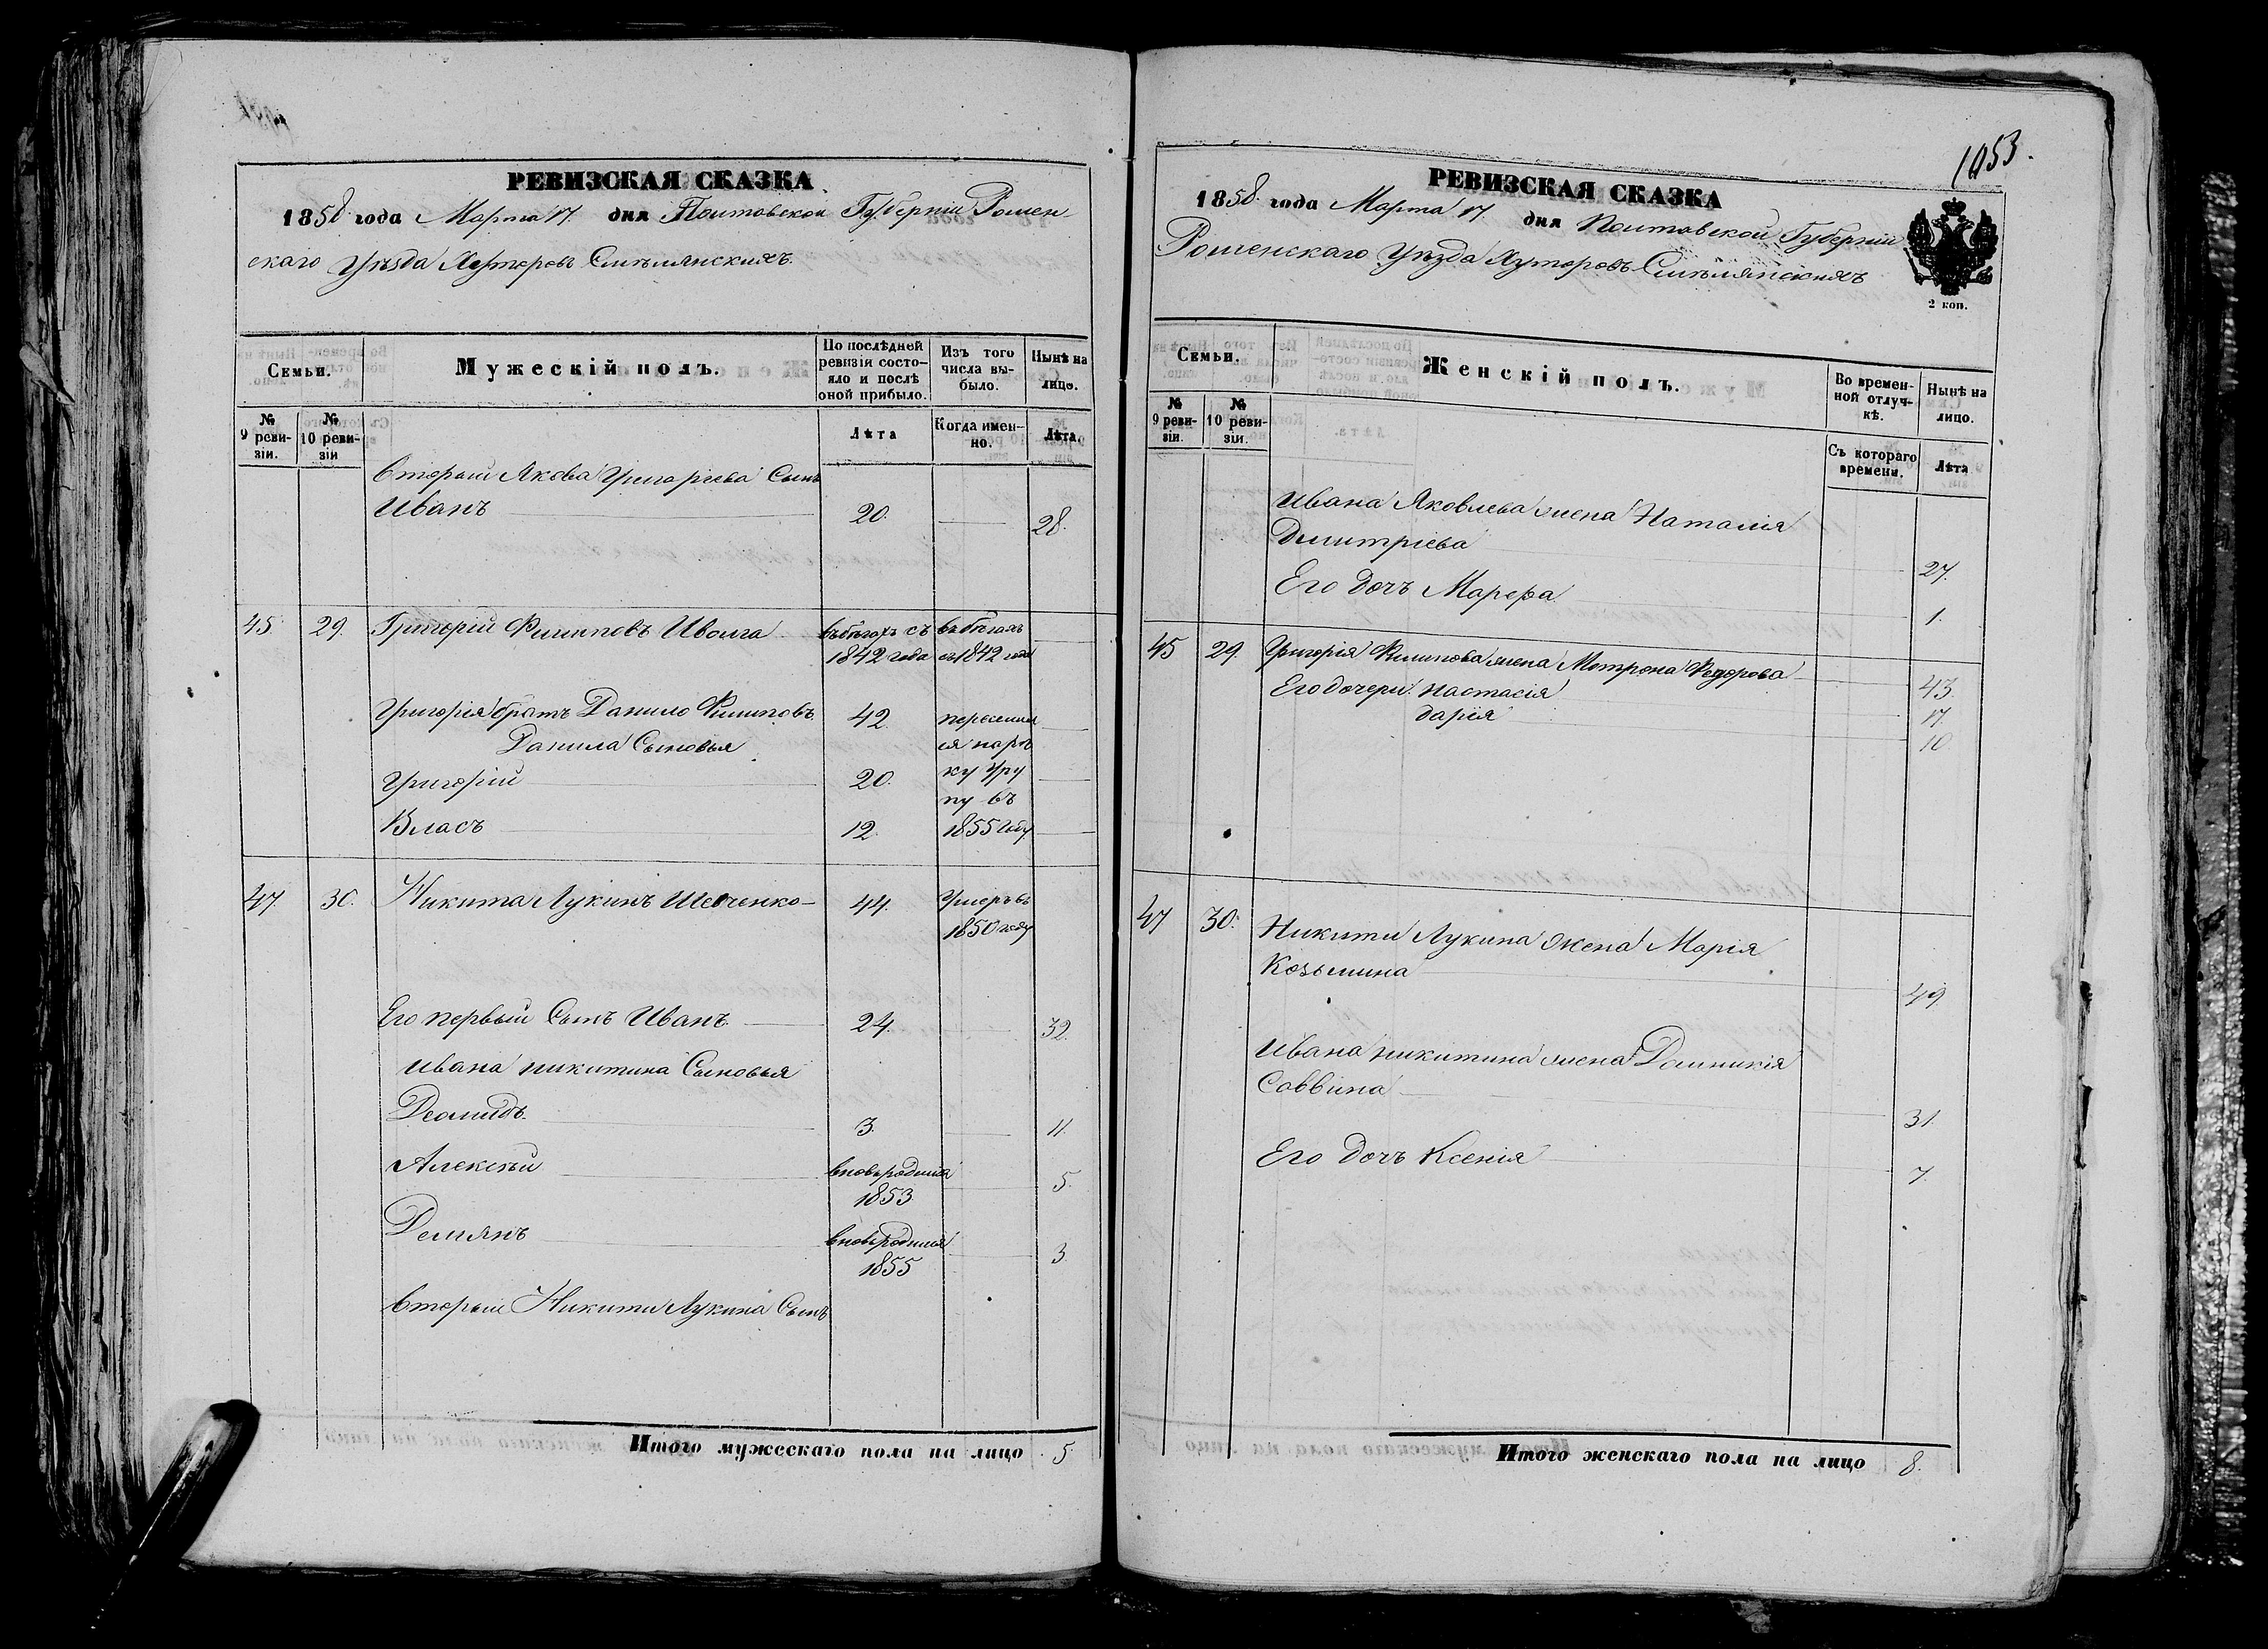 РЕВИЗСКАЯ СКАЗКА
1858 года Марта 17. дня Полтавской Губерніи Ромен
скаго Уѣзда Хуторовъ Смѣлянскихъ.
Семьи.
Мужескій полъ.
По послѣдней ревизіи состояло и послѣ оной прибыло.
Изъ того числа выбыло.
Нынѣ на лицо.
№ 9 ревизіи.
№ 10 ревизіи
Лѣта
Когда именно.
Лѣта.
Вторый Якова Григоріева Сынъ
Иванъ 20. 28.
45. 29. Григорій Филиповъ Иволга въ бѣгахъ съ въ бѣгахъ
1842 года съ 1842 года
Григорія братъ Данило Филиповъ 42. переселил
Данила Сыновья ся на рѣ
Григорій 20. ку Уру
пу въ
Власъ 12. 1855 году
47. 30. Никита Лукинъ Шевченко 44. Умеръ въ
1850 году
Его первый Сынъ Иванъ. 24. 32.
Ивана Никитина Сыновья
Деомидъ. 3. 11.
Алексѣй вновьродился 5.
1853
Демянъ вновьродился 3.
1855
вторый Никиты Лукина Сынъ
Итого мужескаго пола на лицо 5
1053.
РЕВИЗСКАЯ СКАЗКА
1858. года Марта 17. дня Полтавской Губерніи
Роменскаго Уѣзда Хуторовъ Смѣлянскихъ
2 коп.
Семьи.
Женскій полъ.
Во временной отлучкѣ.
Нынѣ на лицо.
№ 9 ревизіи.
№ 10 ревизіи.
Съ котораго времени.
Лѣта
Ивана Яковлева жена Наталія
Димитріева 27.
Его дочь Марфа 1.
45 29. Григорія Филипова жена Мотрона Федорова 43.
Его дочери Настасія 17.
дарія 10.
47 30. Никиты Лукина жена Марія
Козьмина 49
Ивана Никитина жена Домникія
Саввина 31.
Его дочъ Ксенія 7.
Итого женскаго пола на лицо 8.